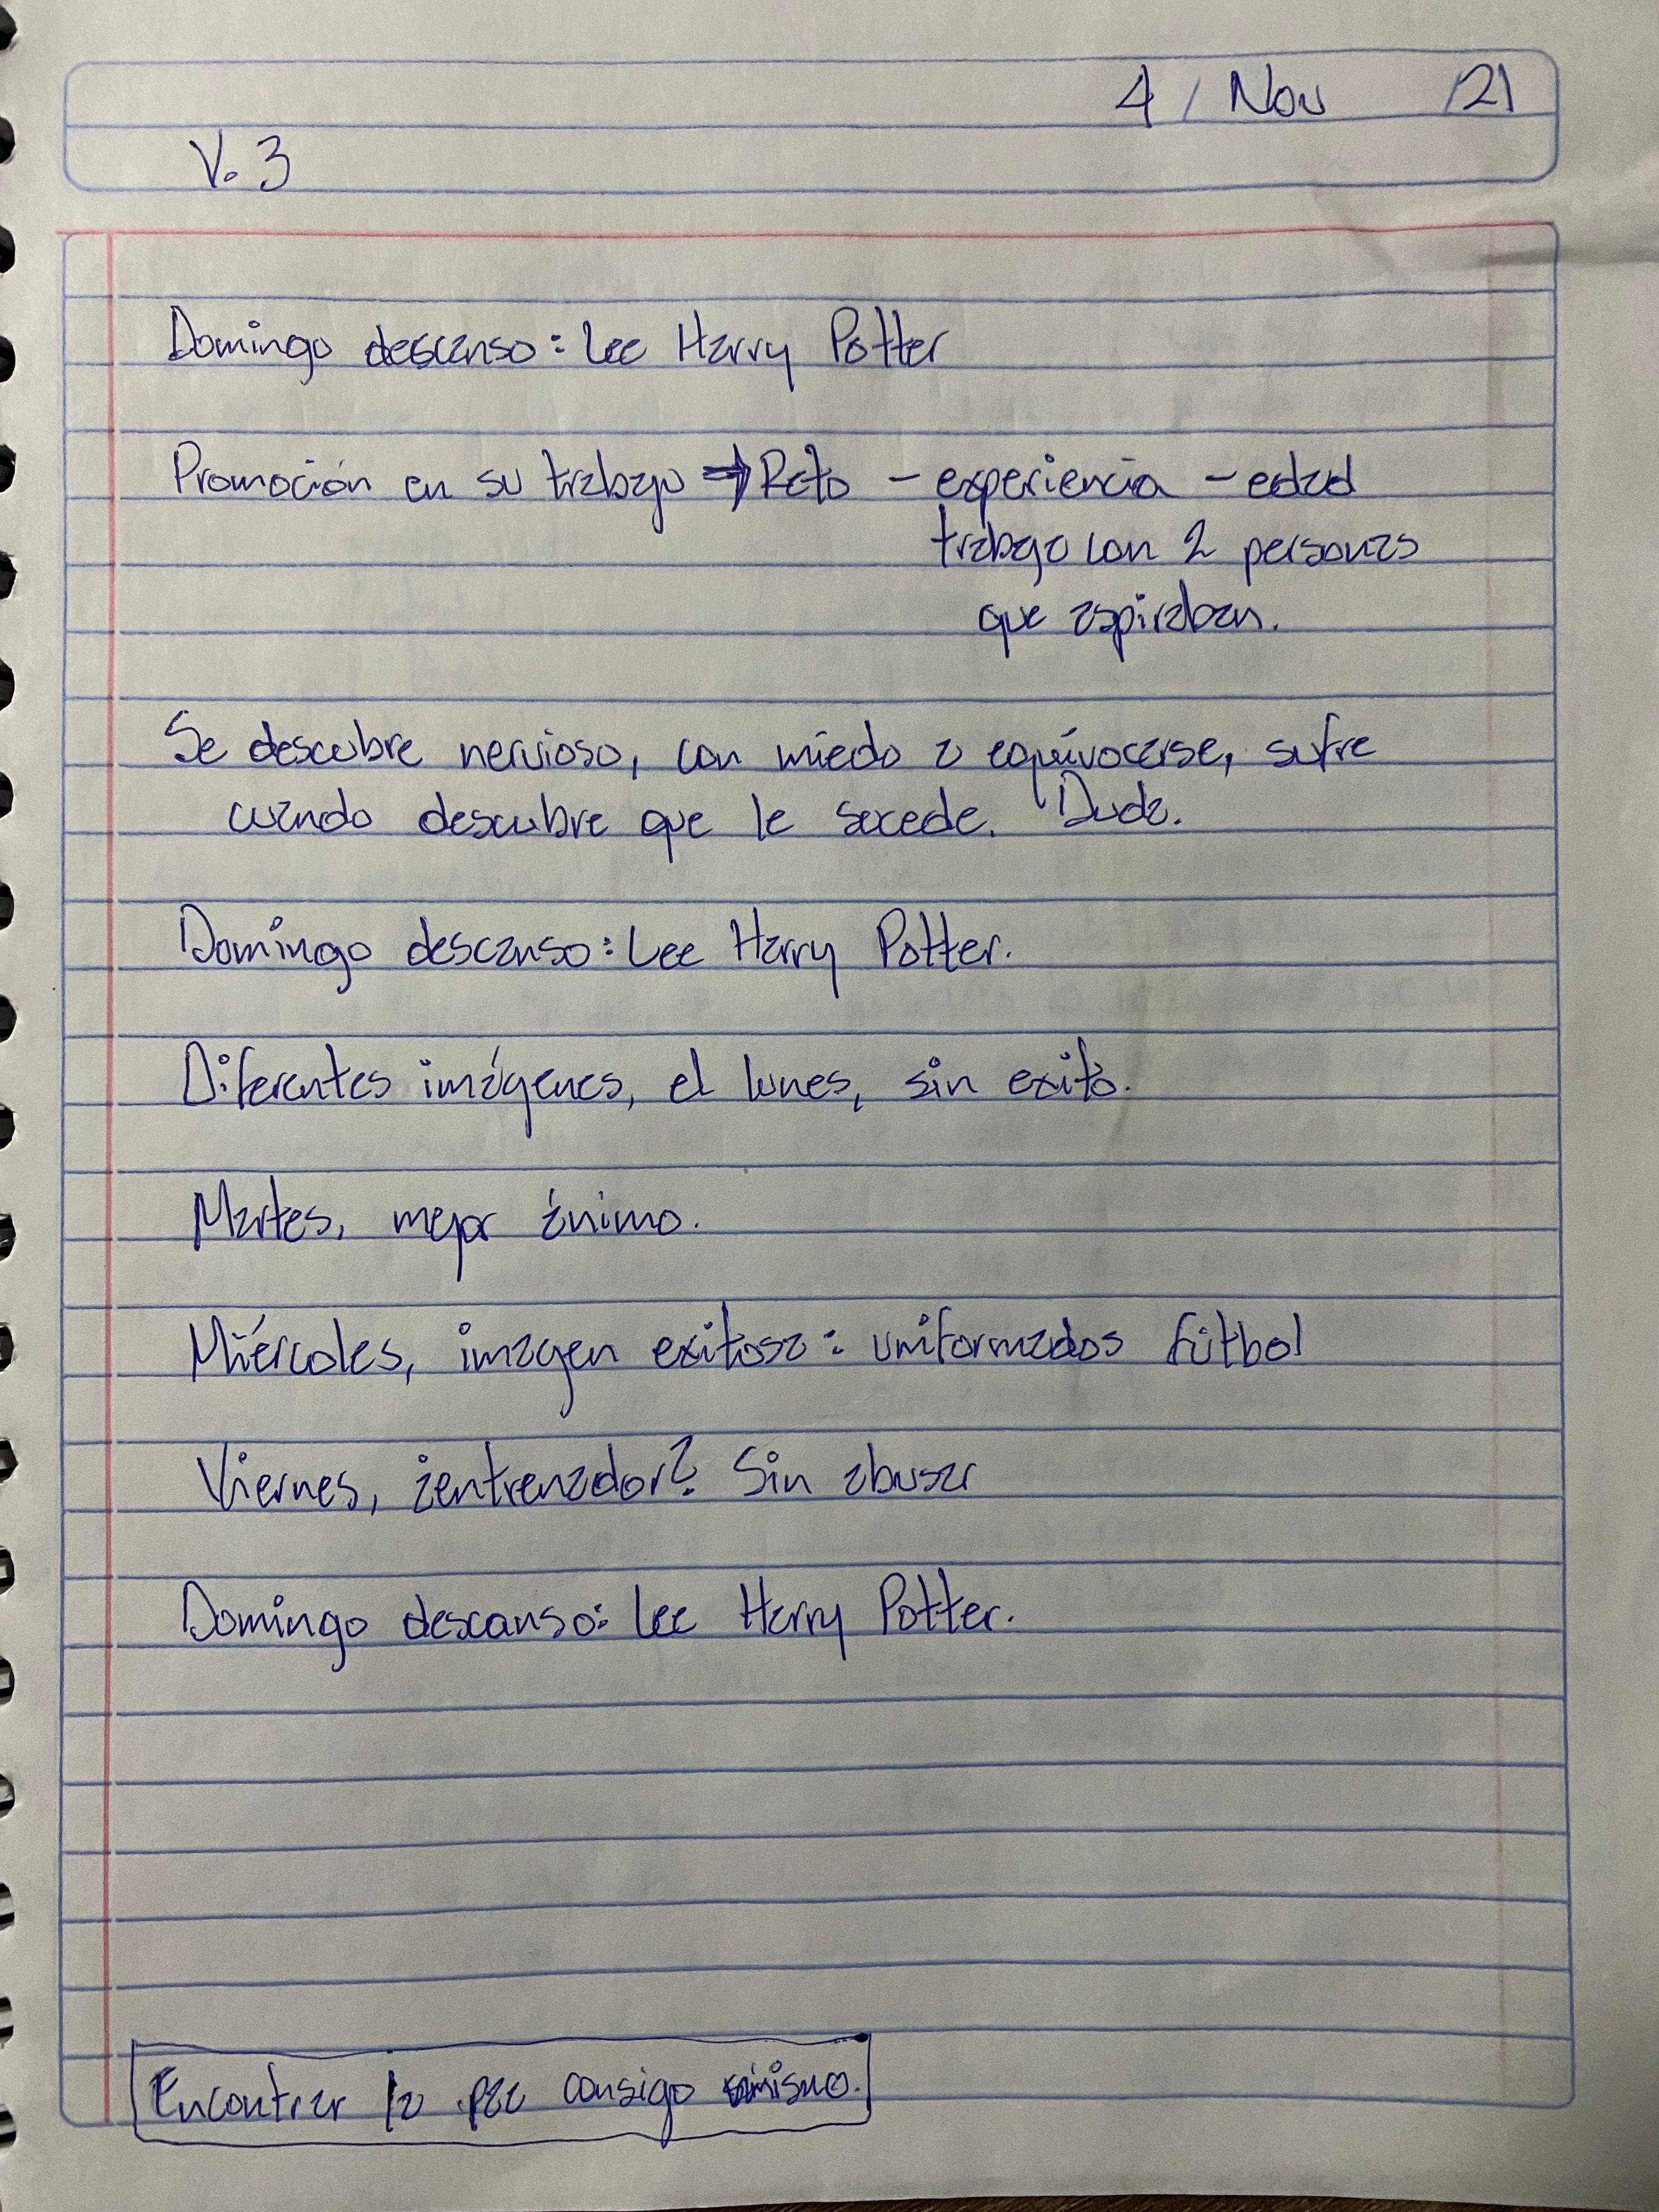 4 / Nov /21
V. 3
Domingo descanso: Lee Harry Potter
Promoción en su trabajo ⇒ Reto - experiencia - edad
trabajo con 2 personas
que aspiraban.
Se descubre nervioso, con miedo a equivocarse, sufre
cuando descubre que le sucede. Duda.
Domingo descanso: Lee Harry Potter.
Diferentes imágenes, el lunes, sin exito.
Martes, mejor ánimo.
Miércoles, imagen exitosa: uniformados fútbol
Viernes, ¿entrenador? Sin abusar
Domingo descanso: Lee Harry Potter.
Encontrar la paz consigo mismo.